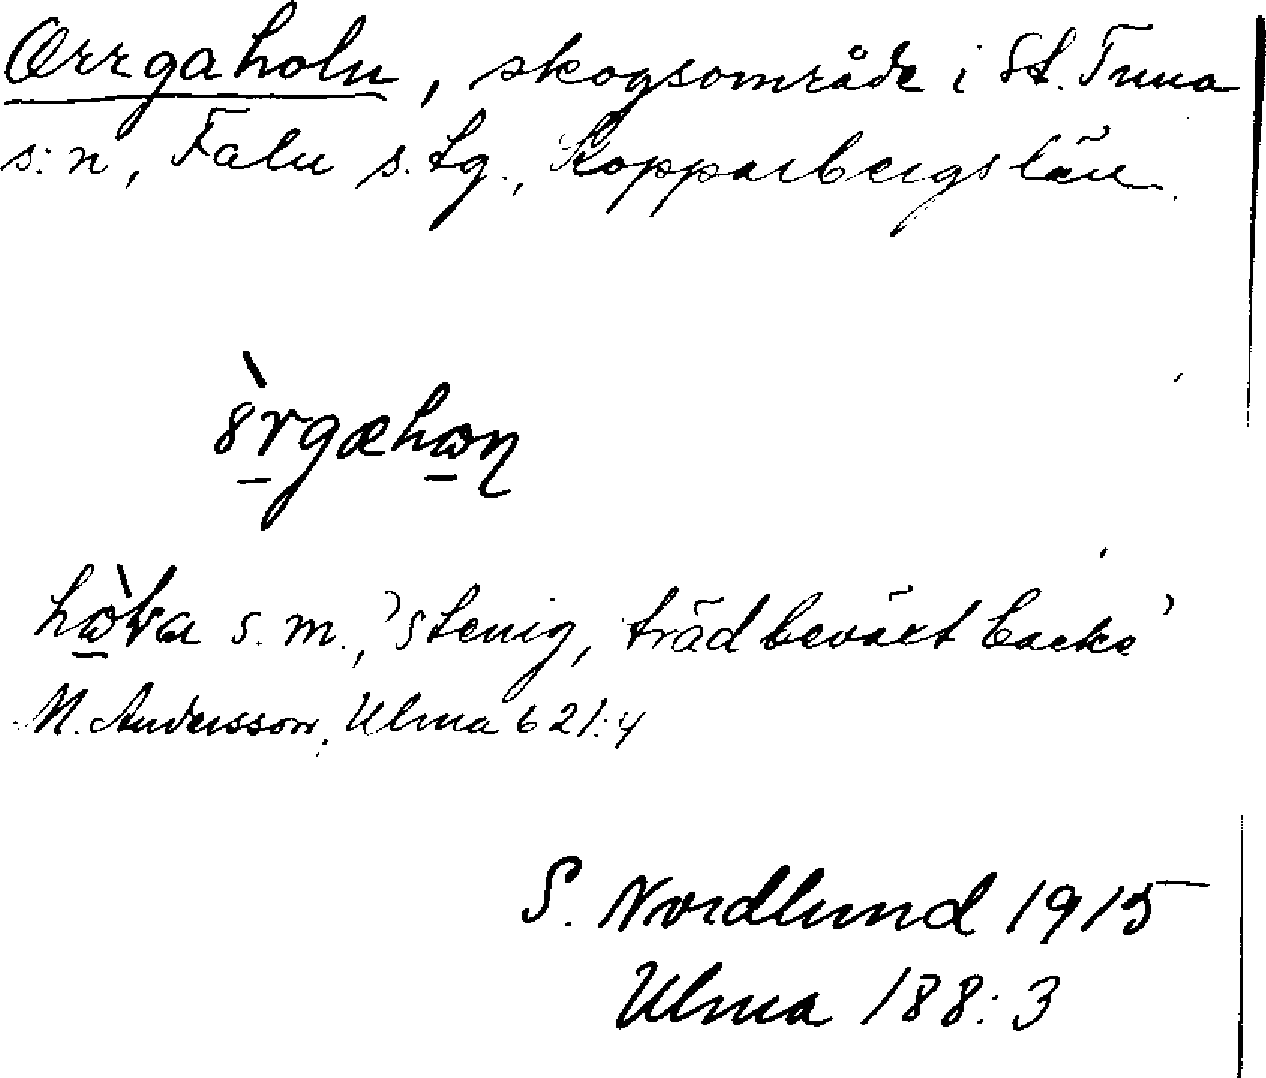 Örrgaholn, skogsområde i St. Tuna
s:n, Falu s. tg., Kopparbergs län.
stenig, trädbeväxt backe'
M. Andersson, Ulma 621:4
S. Nordlund 1915
Ulma 188:3